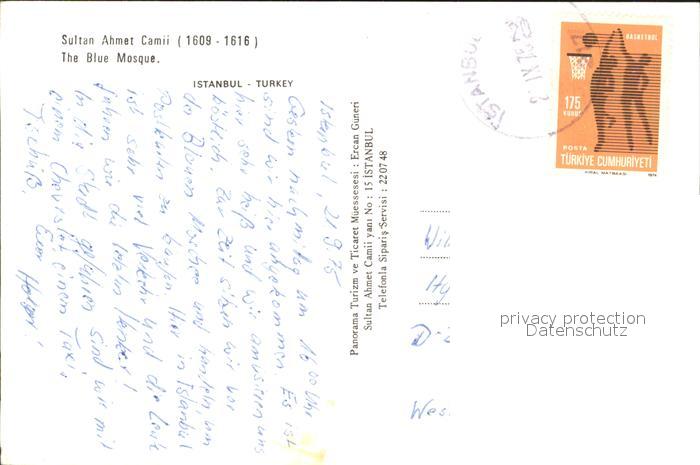 Sultan Ahmet Camii ( 1609 - 1616 )
The Blue Mosque.
ISTANBUL - TURKEY
Istanbul, 21.9.75
Gestern nachmittag um 16.00 Uhr
sind wir hier angekommen. Es ist
hier sehr heiß und wir amüsieren uns
köstlich. Zur Zeit sitzen wir vor
der Blauen Moschee und handeln, um
Postkarten zu kaufen. Hier in Istanbul
ist sehr viel Verkehr und die Leute
fahren wie die irren Henker!
In die Stadt gefahren sind wir mit
einem Chevrolet, einem Taxi.
Tschüß, Euer Holger!
Panorama Turizm ve Ticaret Müessesesi : Ercan Güneri
Sultan Ahmet Camii yanı No : 15 İSTANBUL
Telefonla Sipariş Servisi : 22 07 48
İSTANBUL
BASKETBOL
175
KURUŞ
POSTA
TÜRKİYE CUMHURİYETİ
1974
D-
Wes
privacy protection
Datenschutz